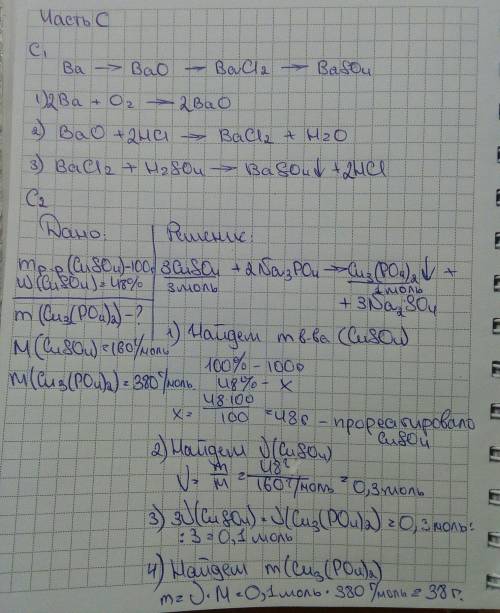 Часть С
С1
Ba → BaO → BaCl2 → BaSO4
1) 2Ba + O2 → 2BaO
2) BaO + 2HCl → BaCl2 + H2O
3) BaCl2 + H2SO4 → BaSO4↓ + 2HCl
С2
Дано:
mр-р(CuSO4)-100г
W(CuSO4)=48%
m(Cu3(PO4)2)-?
M(CuSO4)=160г/моль
M(Cu3(PO4)2)=380г/моль
Решение:
3CuSO4 + 2Na3PO4 → Cu3(PO4)2↓ +
3моль 1моль
+ 3Na2SO4
1) Найдем m в-ва (CuSO4)
100% - 100г
48% - x
x= 48·100/100 =48г - прореагировало
CuSO4
2) Найдем ν(CuSO4)
ν= m/M = 48г/160г/моль = 0,3моль
3) 3ν(CuSO4)=ν(Cu3(PO4)2)=0,3моль:
:3=0,1моль
4) Найдем m(Cu3(PO4)2)
m=ν·M=0,1моль·380г/моль=38г.